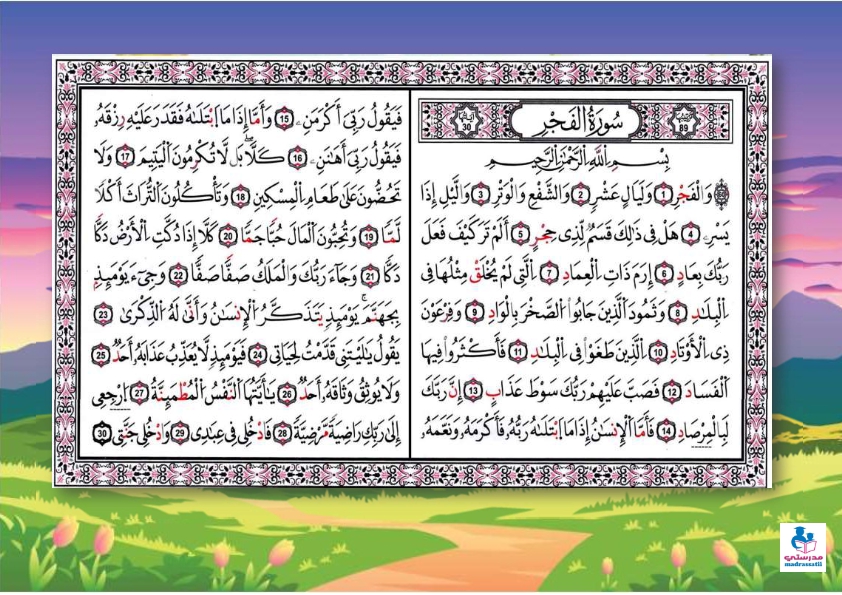 سُورَةُ الْفَجْرِ
89
30
بِسْمِ اللَّهِ الرَّحْمَٰنِ الرَّحِيمِ
وَالْفَجْرِ 1 وَلَيَالٍ عَشْرٍ 2 وَالشَّفْعِ وَالْوَتْرِ 3 وَاللَّيْلِ إِذَا
يَسْرِ 4 هَلْ فِي ذَٰلِكَ قَسَمٌ لِّذِي حِجْرٍ 5 أَلَمْ تَرَ كَيْفَ فَعَلَ
رَبُّكَ بِعَادٍ 6 إِرَمَ ذَاتِ الْعِمَادِ 7 الَّتِي لَمْ يُخْلَقْ مِثْلُهَا فِي
الْبِلَٰدِ 8 وَثَمُودَ الَّذِينَ جَابُوا الصَّخْرَ بِالْوَادِ 9 وَفِرْعَوْنَ
ذِي الْأَوْتَادِ 10 الَّذِينَ طَغَوْا فِي الْبِلَٰدِ 11 فَأَكْثَرُوا فِيهَا
الْفَسَادَ 12 فَصَبَّ عَلَيْهِمْ رَبُّكَ سَوْطَ عَذَابٍ 13 إِنَّ رَبَّكَ
لَبِالْمِرْصَادِ 14 فَأَمَّا الْإِنسَٰنُ إِذَا مَا ابْتَلَىٰهُ رَبُّهُ فَأَكْرَمَهُ وَنَعَّمَهُ
فَيَقُولُ رَبِّيَ أَكْرَمَنِ 15 وَأَمَّا إِذَا مَا ابْتَلَىٰهُ فَقَدَرَ عَلَيْهِ رِزْقَهُ
فَيَقُولُ رَبِّيَ أَهَٰنَنِ 16 كَلَّا بَل لَّا تُكْرِمُونَ الْيَتِيمَ 17 وَلَا
تَحُضُّونَ عَلَىٰ طَعَامِ الْمِسْكِينِ 18 وَتَأْكُلُونَ التُّرَاثَ أَكْلًا
لَّمًّا 19 وَتُحِبُّونَ الْمَالَ حُبًّا جَمًّا 20 كَلَّا إِذَا دُكَّتِ الْأَرْضُ دَكًّا
دَكًّا 21 وَجَاءَ رَبُّكَ وَالْمَلَكُ صَفًّا صَفًّا 22 وَجِيءَ يَوْمَئِذٍ
بِجَهَنَّمَ يَوْمَئِذٍ يَتَذَكَّرُ الْإِنسَٰنُ وَأَنَّىٰ لَهُ الذِّكْرَىٰ 23
يَقُولُ يَٰلَيْتَنِي قَدَّمْتُ لِحَيَاتِي 24 فَيَوْمَئِذٍ لَّا يُعَذِّبُ عَذَابَهُ أَحَدٌ 25
وَلَا يُوثِقُ وَثَاقَهُ أَحَدٌ 26 يَٰأَيَّتُهَا النَّفْسُ الْمُطْمَئِنَّةُ 27 ارْجِعِي
إِلَىٰ رَبِّكِ رَاضِيَةً مَّرْضِيَّةً 28 فَادْخُلِي فِي عِبَٰدِي 29 وَادْخُلِي جَنَّتِي 30
مدرستي
madrassatii